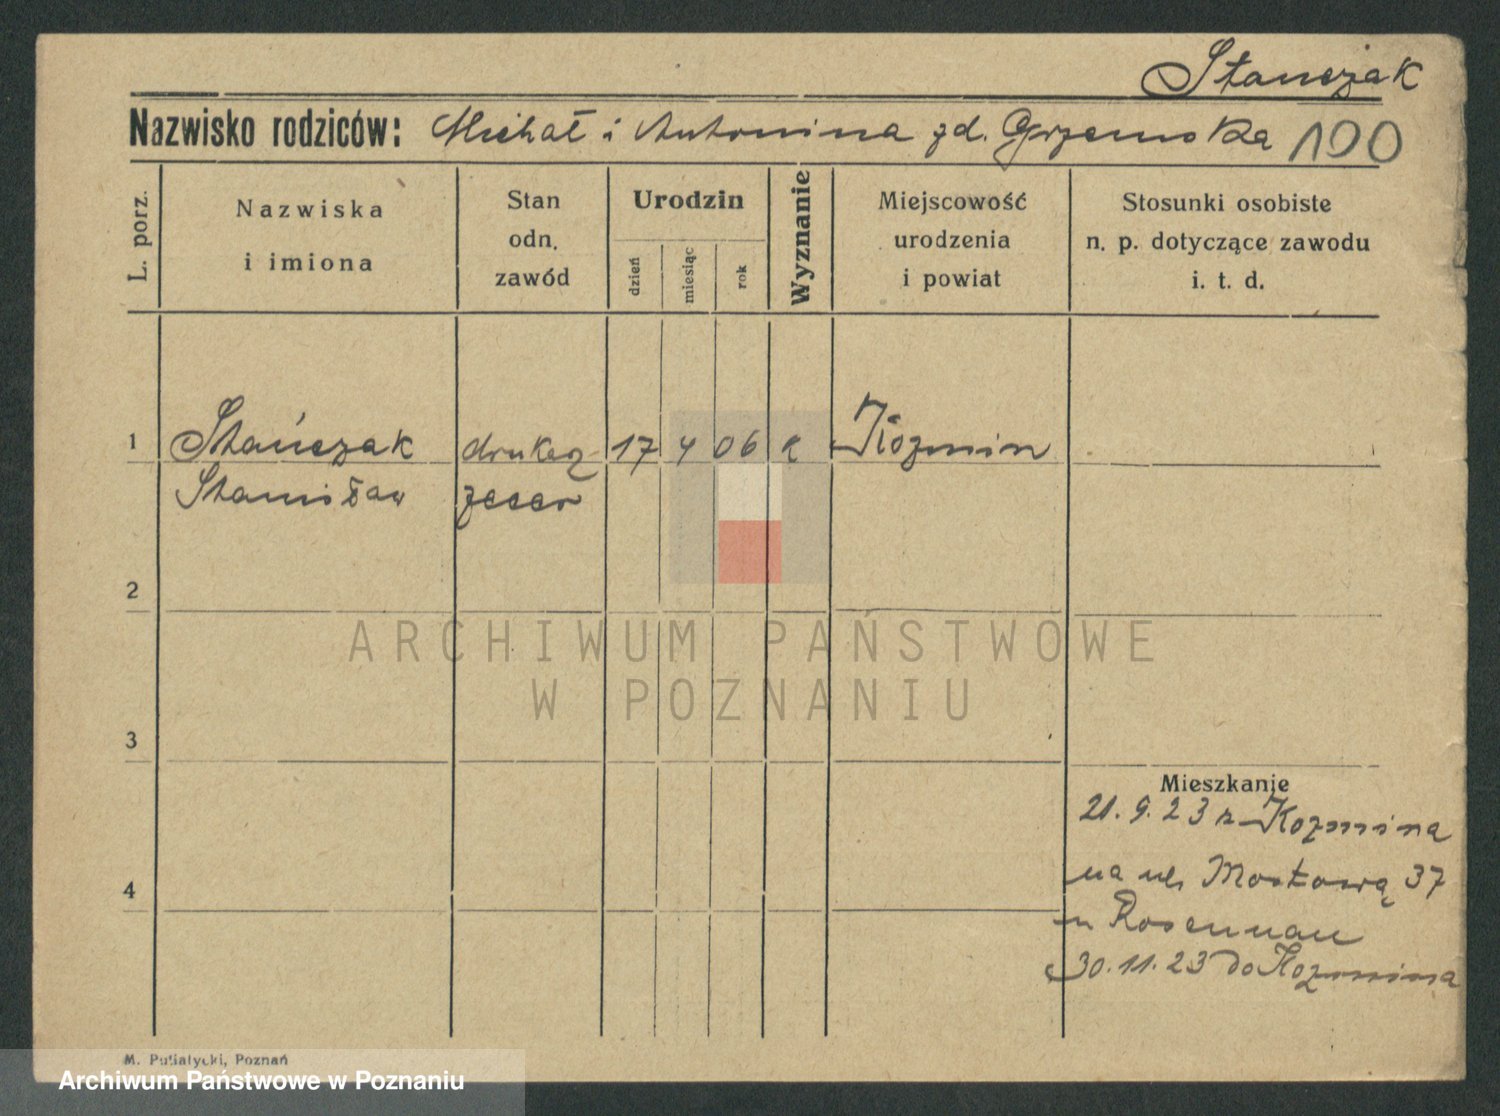 Stanczak
Nazwisko rodziców: Michał i Antonina zd. Grzemska 100
L. porz.
Nazwiska
i imiona
Stan
odn.
zawód
Urodzin
dzień
miesiąc
rok
Wyznanie
Miejscowość
urodzenia
i powiat
Stosunki osobiste
n. p. dotyczące zawodu
i. t. d.
1 Stańczak drukarz 17 4 06 k Kozmin
Stanisław zecer
2
ARCHIWUM PAŃSTWOWE
W POZNANIU
3
Mieszkanie
21.9.23 z Kozmina
4
na ul. Mostową 37
u Rosennau
30.11.23 do Kozmina
M. Putiatycki, Poznań
Archiwum Państwowe w Poznaniu